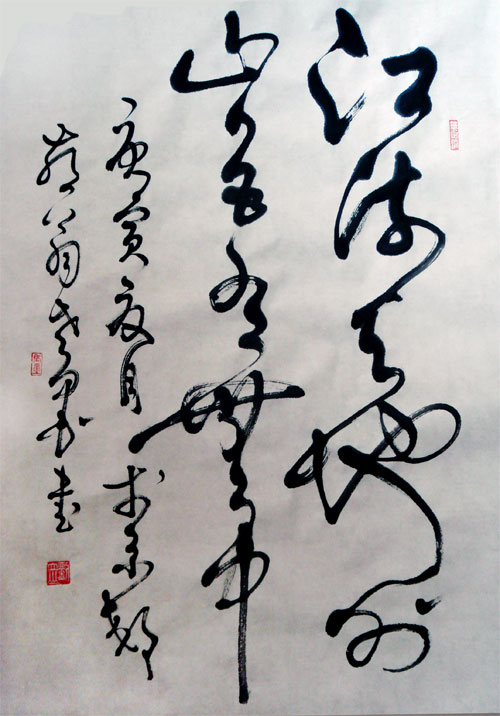 江流天地外
山色有無中
庚寅夏月於京都
翁 書